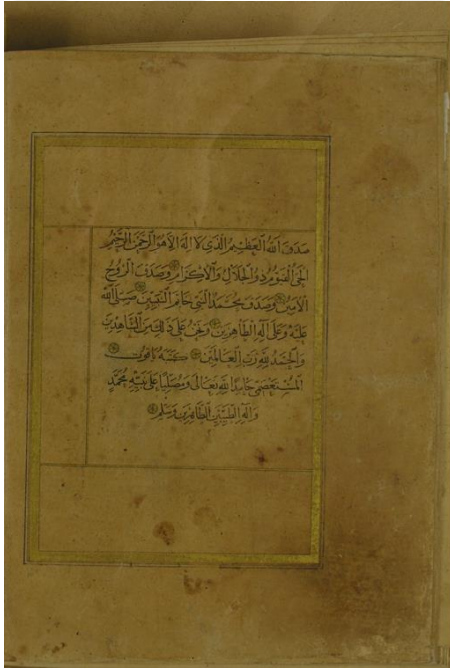 صدق الله العظيم الذي لا اله الا هو الرحمن الرحيم
الحي القيوم ذو الجلال والاكرام وصدق الروح
الامين وصدق محمد النبي خاتم النبيين صلى الله
عليه وعلى آله الطاهرين ونحن على ذلك من الشاهدين
والحمد لله رب العالمين كتبه ياقوت
المستعصمي حامدا لله تعالى ومصليا على نبيه محمد
وآله الطيبين الطاهرين وسلم